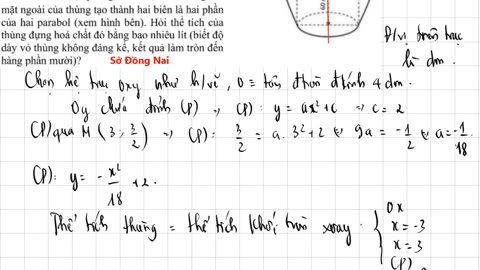 mặt ngoài của thùng tạo thành hai biên là hai phần
của hai parabol (xem hình bên). Hỏi thể tích của
thùng đựng hoá chất đó bằng bao nhiêu lít (biết độ
dày vỏ thùng không đáng kể, kết quả làm tròn đến
hàng phần mười)? Sở Đồng Nai
Đ/vị trên trục
là dm.
Chọn hệ trục Oxy như h/vẽ, O = tâm đtròn đkính 4 dm.
Oy chứa đỉnh (P) → (P): y = ax²+c → c = 2
(P) qua M (3; 3/2) → (P): 3/2 = a.3²+2 ⇔ 9a = -1/2 ⇔ a = -1/18
(P): y = -x²/18 + 2.
Thể tích thùng = thể tích khối tròn xoay
Ox
x = -3
x = 3
(P)